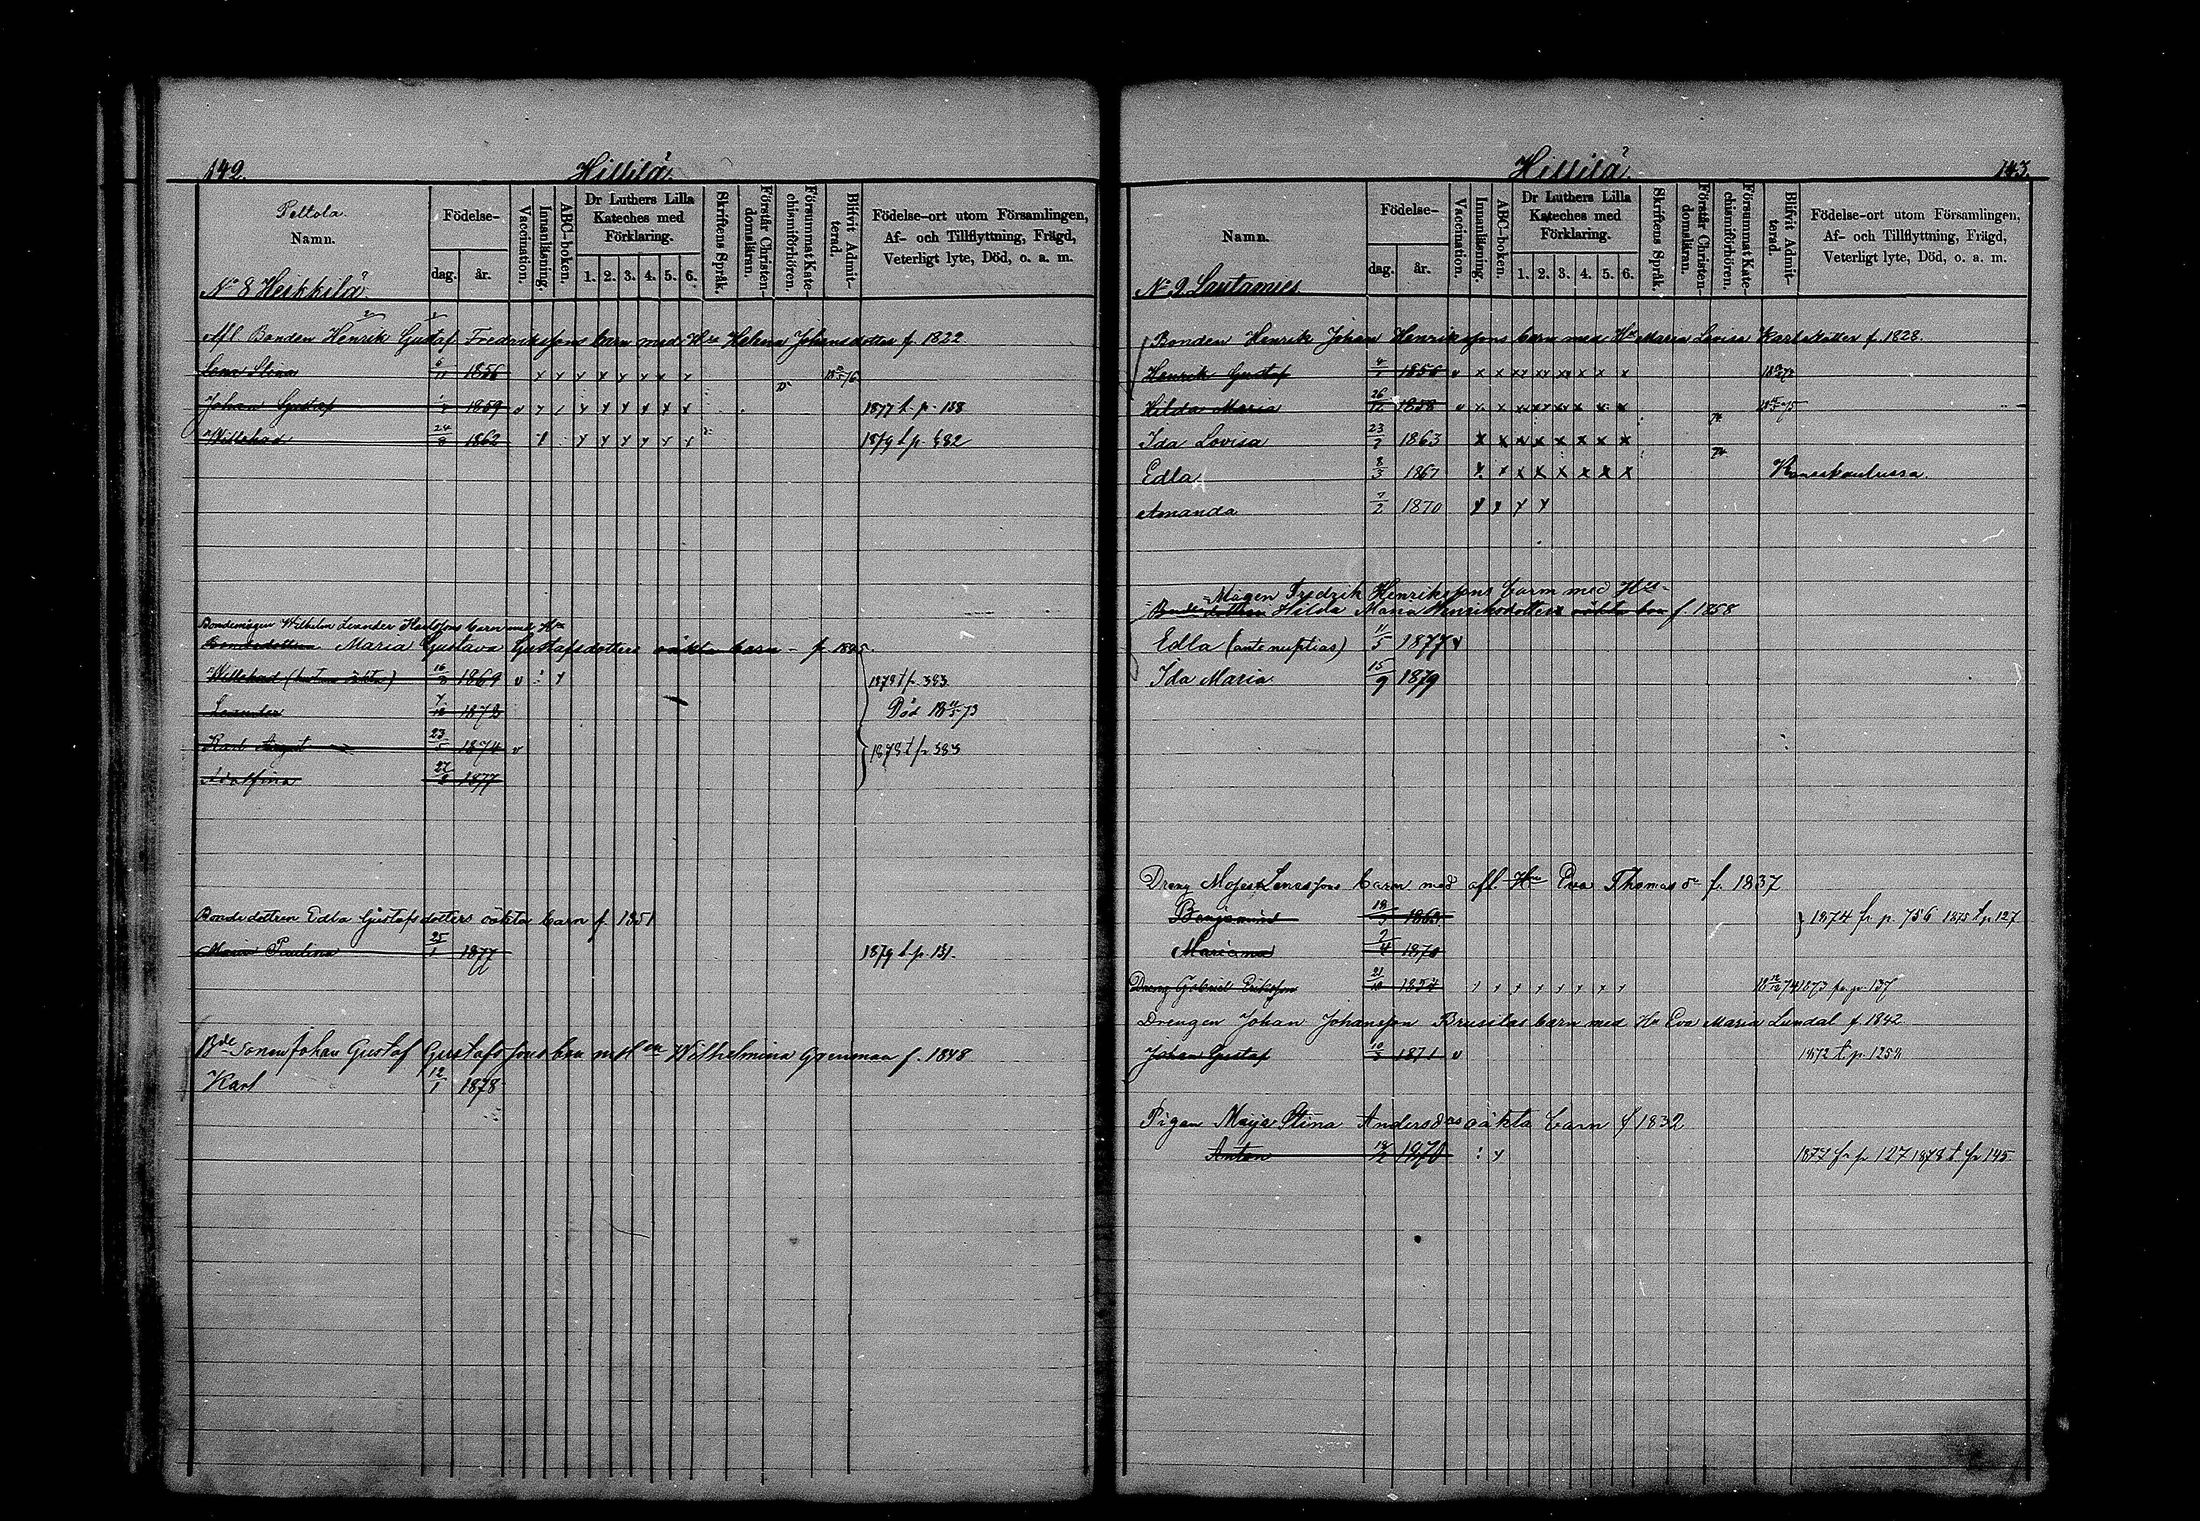 142.
Hillilä.
Peltola.
Namn.
Födelse-
dag. år.
Vaccination.
Innanläsning.
ABC-boken.
Dr Luthers Lilla Kateches med Förklaring.
1. 2. 3. 4. 5. 6.
Skriftens Språk.
Förstår Christendomsläran.
Försummat Katechismiförhören.
Blifvit Admitterad.
Födelse-ort utom Församlingen, Af- och Tillflyttning, Frägd, Veterligt lyte, Död, o. a. m.
No 8 Heikkilä
Afl Bonden Henrik Gustaf Fredrikssons barn med Hu Helena Johansdotter f. 1822
Stina 6/11 1856
Johan Gustaf 1859 v 1877 t. p. 158
Willehad 24/8 1862 1879 t p. 582
Bondemågen Wilhelm Leander Karlssons barn med Hu
Bondedottren Maria Gustava Gustafsdotters oäkta barn f. 1845.
Willehad 16/3 1869 v 1879 t p. 383
Leander 7/12 1872 Död 73
Karl August 23/5 1874 v 1879 t p. 383
Adolfina 27/8 1877
Bondedottren Edla Gustafsdotters oäkta barn f. 1851
Maria Paulina 25/1 1877 1879 t. p. 131.
Bde Sonen Johan Gustaf Gustafssons bn m H Wilhelmina f. 1848
Karl 12/1 1878
Hillilä.
143.
Namn.
Födelse-
dag. år.
Vaccination.
Innanläsning.
ABC-boken.
Dr Luthers Lilla Kateches med Förklaring.
1. 2. 3. 4. 5. 6.
Skriftens Språk.
Förstår Christendomsläran.
Försummat Katechismiförhören.
Blifvit Admitterad.
Födelse-ort utom Församlingen, Af- och Tillflyttning, Frägd, Veterligt lyte, Död, o. a. m.
No 9 Lautamies
Bonden Henrik Johan Henrikssons barn med Hu Maria Lovisa Karlsdotter f. 1828.
Henrik Gustaf 1856 v
Hilda Maria 26/12 1858 v
Ida Lovisa 23/7 1863
Edla 8/3 1867 Kansakoulussa.
Amanda 7/2 1870
Mågen Fredrik Henrikssons barn med Hu
Bondedottren Hilda Maria Henriksdotters oäkta bn f. 1858
Edla (ante nuptias) 11/5 1877 v
Ida Maria 15/9 1879
Dreng Moses barn med afl. Hu Eva Thomas dr f. 1837
Benjamin 18/3 1863 1874 fr p. 756 1875 t p. 127
Marianna 2/4 1870
Dreng Gabriel Eriksson 21/10 1854 1873 fr. p. 137
Drengen Johan Johansson Brusilas barn med Hu Eva Maria Lundal f. 1842
Johan Gustaf 10/3 1871 v 1872 t. p. 1258
Pigan Maja Stina Andersdrs oäkta barn f 1832
Anton 1870 1877 fr p 127 1878 t p 145